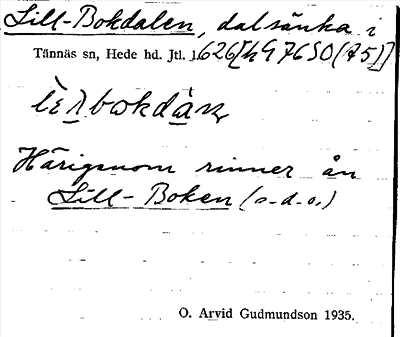 Lill-Bokdalen, dalsänka i
Tännäs sn, Hede hd. Jtl. 1626[h97650(75)]
Härigenom rinner ån
Lill-Boken (s.d.o.)
O. Arvid Gudmundson 1935.